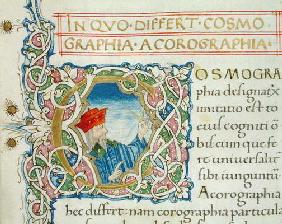 IN QVO DIFFERT COSMO
GRAPHIA A COROGRAPHIA.
COSMOGRA
phia designatx
imitatio est to
cius cogniti o
bis cum que fe
re universalit
sibi iungunt
A corographia
hec differt nam corographia particula